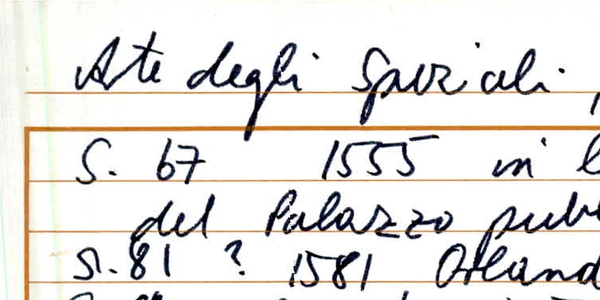 Arte degli Speziali.
S. 67 1555 in l
del Palazzo pub
S. 81 ? 1581 Orland